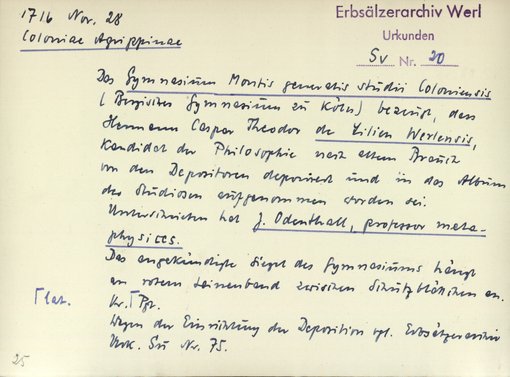 1716 Nov. 28
Coloniae Agrippinae
Erbsälzerarchiv Werl
Urkunden
Sv Nr. 20
Das Gymnasium Montis generalis studii Coloniensis
( Bergisches Gymnasium zu Köln) bezeugt, dass
Hermann Caspar Theodor de Lilien Werlensis,
Kandidat der Philosophie nach altem Brauch
von den Depositoren deponiert und in das Album
der Studiosen aufgenommen worden sei.
Unterschrieben hat J. Odenthall, professor meta-
physices.
Das angekündigte Siegel des Gymnasiums hängt
an rotem Leinenband zwischen Schutzblättchen an.
Kr.⌈ Pgt.
⌈ lat.
Wegen der Einrichtung der Deposition vgl. Erbsälzerarchiv
Urk. Nr. 75.
25